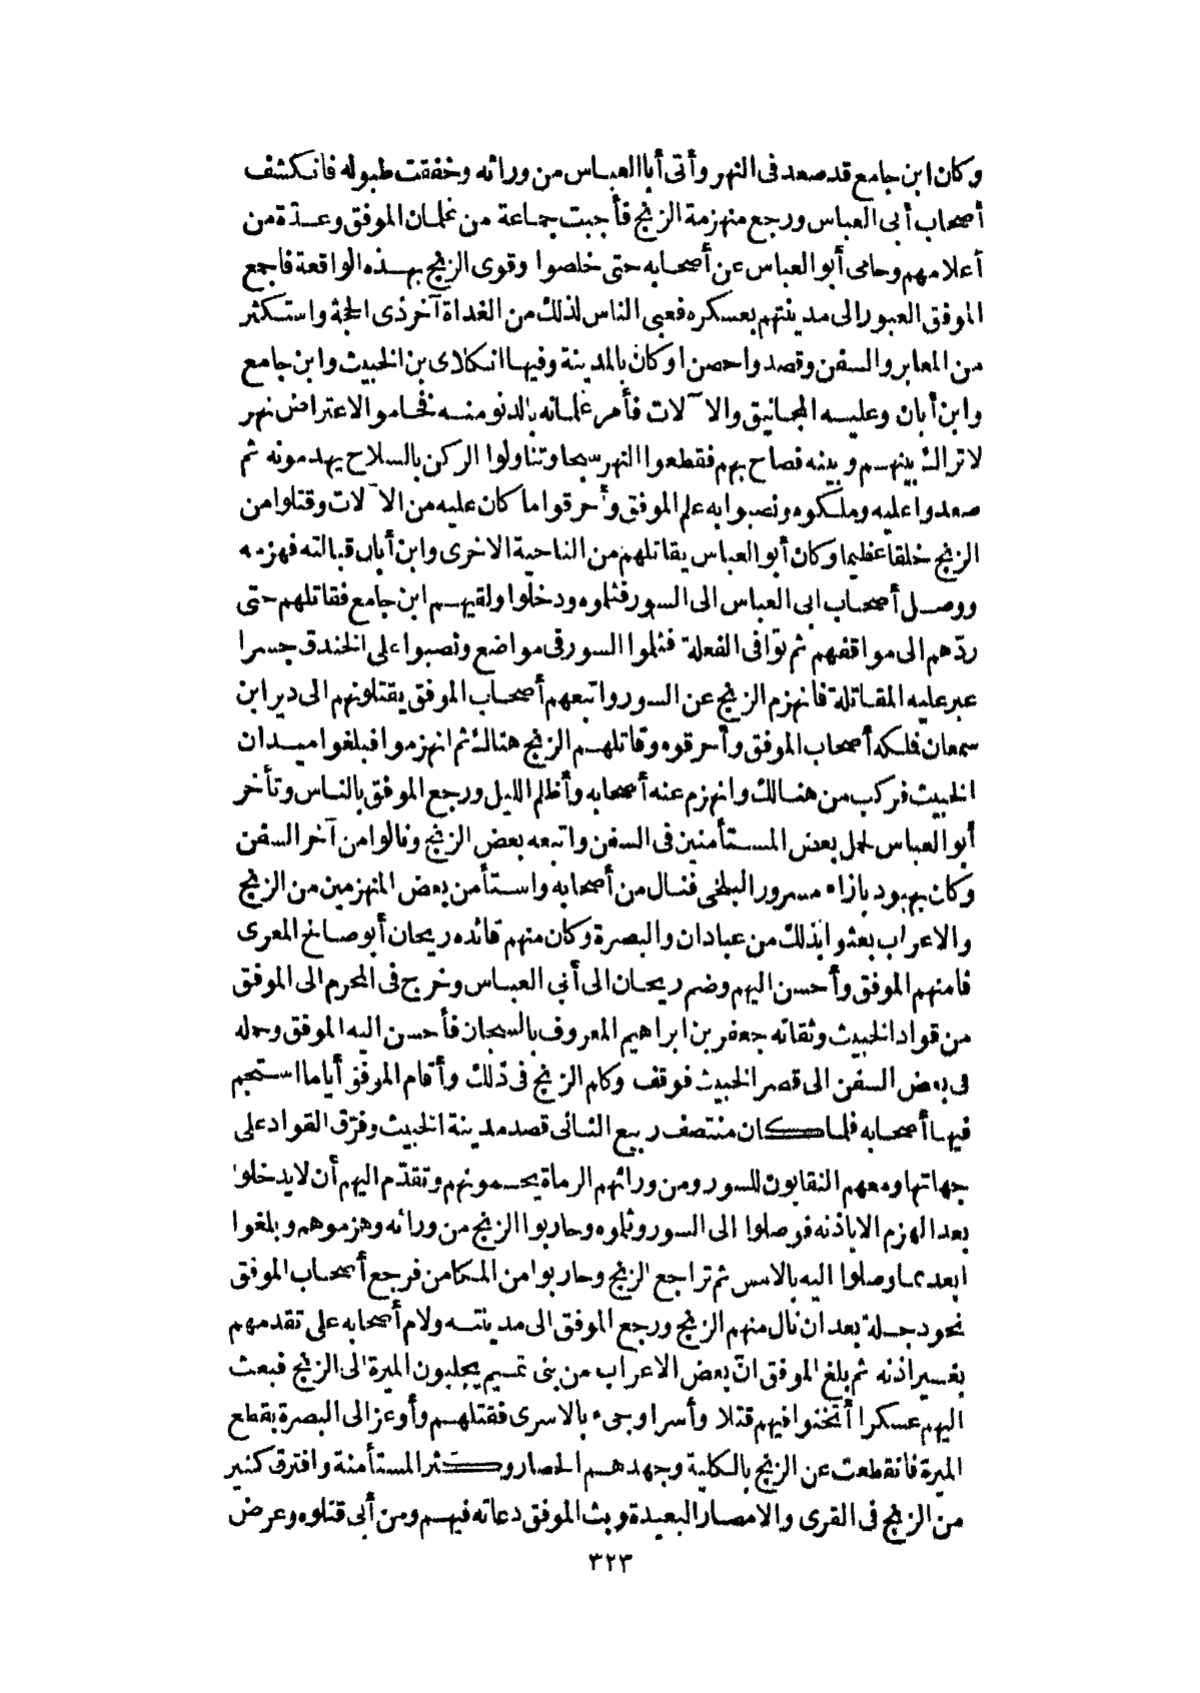 وكان ابن جامع قد صعد فى النهر وأتى أبا العباس من ورائه وخفقت طبوله فانكشف
أصحاب أبى العباس ورجع منهزمة الزنج فأجبت جماعة من غلمان الموفق وعدّة من
أعلامهم وحامى أبو العباس عن أصحابه حتى خلصوا وقوى الزنج بهذه الواقعة فاجمع
الموفق العبور الى مدينتهم بعسكره فعبى الناس لذلك من الغداة آخر ذى الحجة واستكثر
من المعابر والسفن وقصدوا حصن اوكان بالمدينة وفيها انكلاى بن الخبيث وابن جامع
وابن أبان وعليه المجانيق والآلات فأمر غلمانه بالدنو منه فخاموا لاعتراض نهر
لاتراك بينهم وبينه فصاح بهم فقطعوا النهر سبحا وتناولوا الركن بالسلاح يهدمونه ثم
صعدوا عليه وملكوه ونصبوا به علم الموفق وأحرقوا ما كان عليه من الآلات وقتلوا من
الزنج خلقا عظيما وكان أبو العباس يقاتلهم من الناحية الاخرى وابن أبان قبالته فهزمه
ووصل أصحاب ابى العباس الى السور فثلموه ودخلوا ولقيهم ابن جامع فقاتلهم حتى
ردّهم الى مواقفهم ثم توافى الفعلة فثلموا السور فى مواضع ونصبوا على الخندق جسرا
عبر عليه المقاتلة فانهزم الزنج عن السور واتبعهم أصحاب الموفق يقتلونهم الى دير ابن
سمعان فملكه أصحاب الموفق وأحرقوه وقاتلهم الزنج هنالك ثم انهزموا فبلغوا ميدان
الخبيث فركب من هنالك وانهزم عنه أصحابه وأظلم الليل ورجع الموفق بالناس وتأخر
أبو العباس لحمل بعض المستأمنين فى السفن واتبعه بعض الزنج ونالوا من آخر السفن
وكان بهبود بازاء مسرور البلخى فنال من أصحابه واستأمن بعض المنهزمين من الزنج
والاعراب بعثوا بذلك من عبادان والبصرة وكان منهم قائده ريحان أبو صالح المعرى
فامنهم الموفق وأحسن اليهم وضم ريحان الى أبي العباس وخرج فى المحرم الى الموفق
من قواد الخبيث وثقاته جعفر بن ابراهيم المعروف بالسجان فأحسن اليه الموفق وحمله
فى بعض السفن الى قصر الخبيث فوقف وكلم الزنج فى ذلك وأقام الموفق أياما استجم
فيها أصحابه فلما كان منتصف ربيع الثانى قصد مدينة الخبيث وفرّق القواد على
جهاتها ومعهم النقابون للسور ومن ورائهم الرماة يحمونهم وتقدّم اليهم أن لا يدخلوا
بعد الهزم الا باذنه فوصلوا الى السور وثلموه وحاربوا الزنج من ورائه وهزموهم وبلغوا
ابعد مما وصلوا اليه بالامس ثم تراجع الزنج وحاربوا من المكامن فرجع أصحاب الموفق
نحو دجلة بعد ان نال منهم الزنج ورجع الموفق الى مدينته ولام أصحابه على تقدمهم
بغير اذنه ثم بلغ الموفق انّ بعض الاعراب من بنى تميم يجلبون الميرة الى الزنج فبعث
اليهم عسكرا أثخنوا فيهم قتلا وأسرا وجىء بالاسرى فقتلهم وأوعز الى البصرة بقطع
الميرة فانقطعت عن الزنج بالكلية وجهدهم الحصار وكثر المستأمنة وافترق كثير
من الزنج فى القرى والامصار البعيدة وبث الموفق دعاته فيهم ومن أبى قتلوه وعرض
٣٢٣